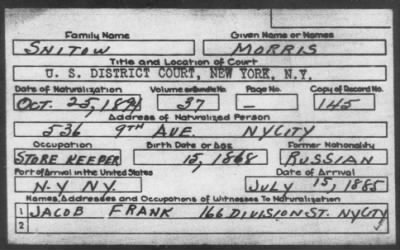 Family Name Given Name or Names
SNITOW MORRIS
Title and Location of Court
U. S. DISTRICT COURT, NEW YORK, N.Y.
Date of Naturalization Volume or Bundle No. Page No. Copy of Record No.
OCT. 25, 1894 37 – 145
Address of Naturalized Person
536 9TH AVE. NYCITY
Occupation Birth Date or Age Former Nationality
STORE KEEPER 15, 1868 RUSSIAN
Port of Arrival in the United States Date of Arrival
N-Y NY. JULY 15, 1885
Names, Addresses and Occupations of Witnesses To Naturalization
1 JACOB FRANK 166 DIVISION ST. NYCITY
2